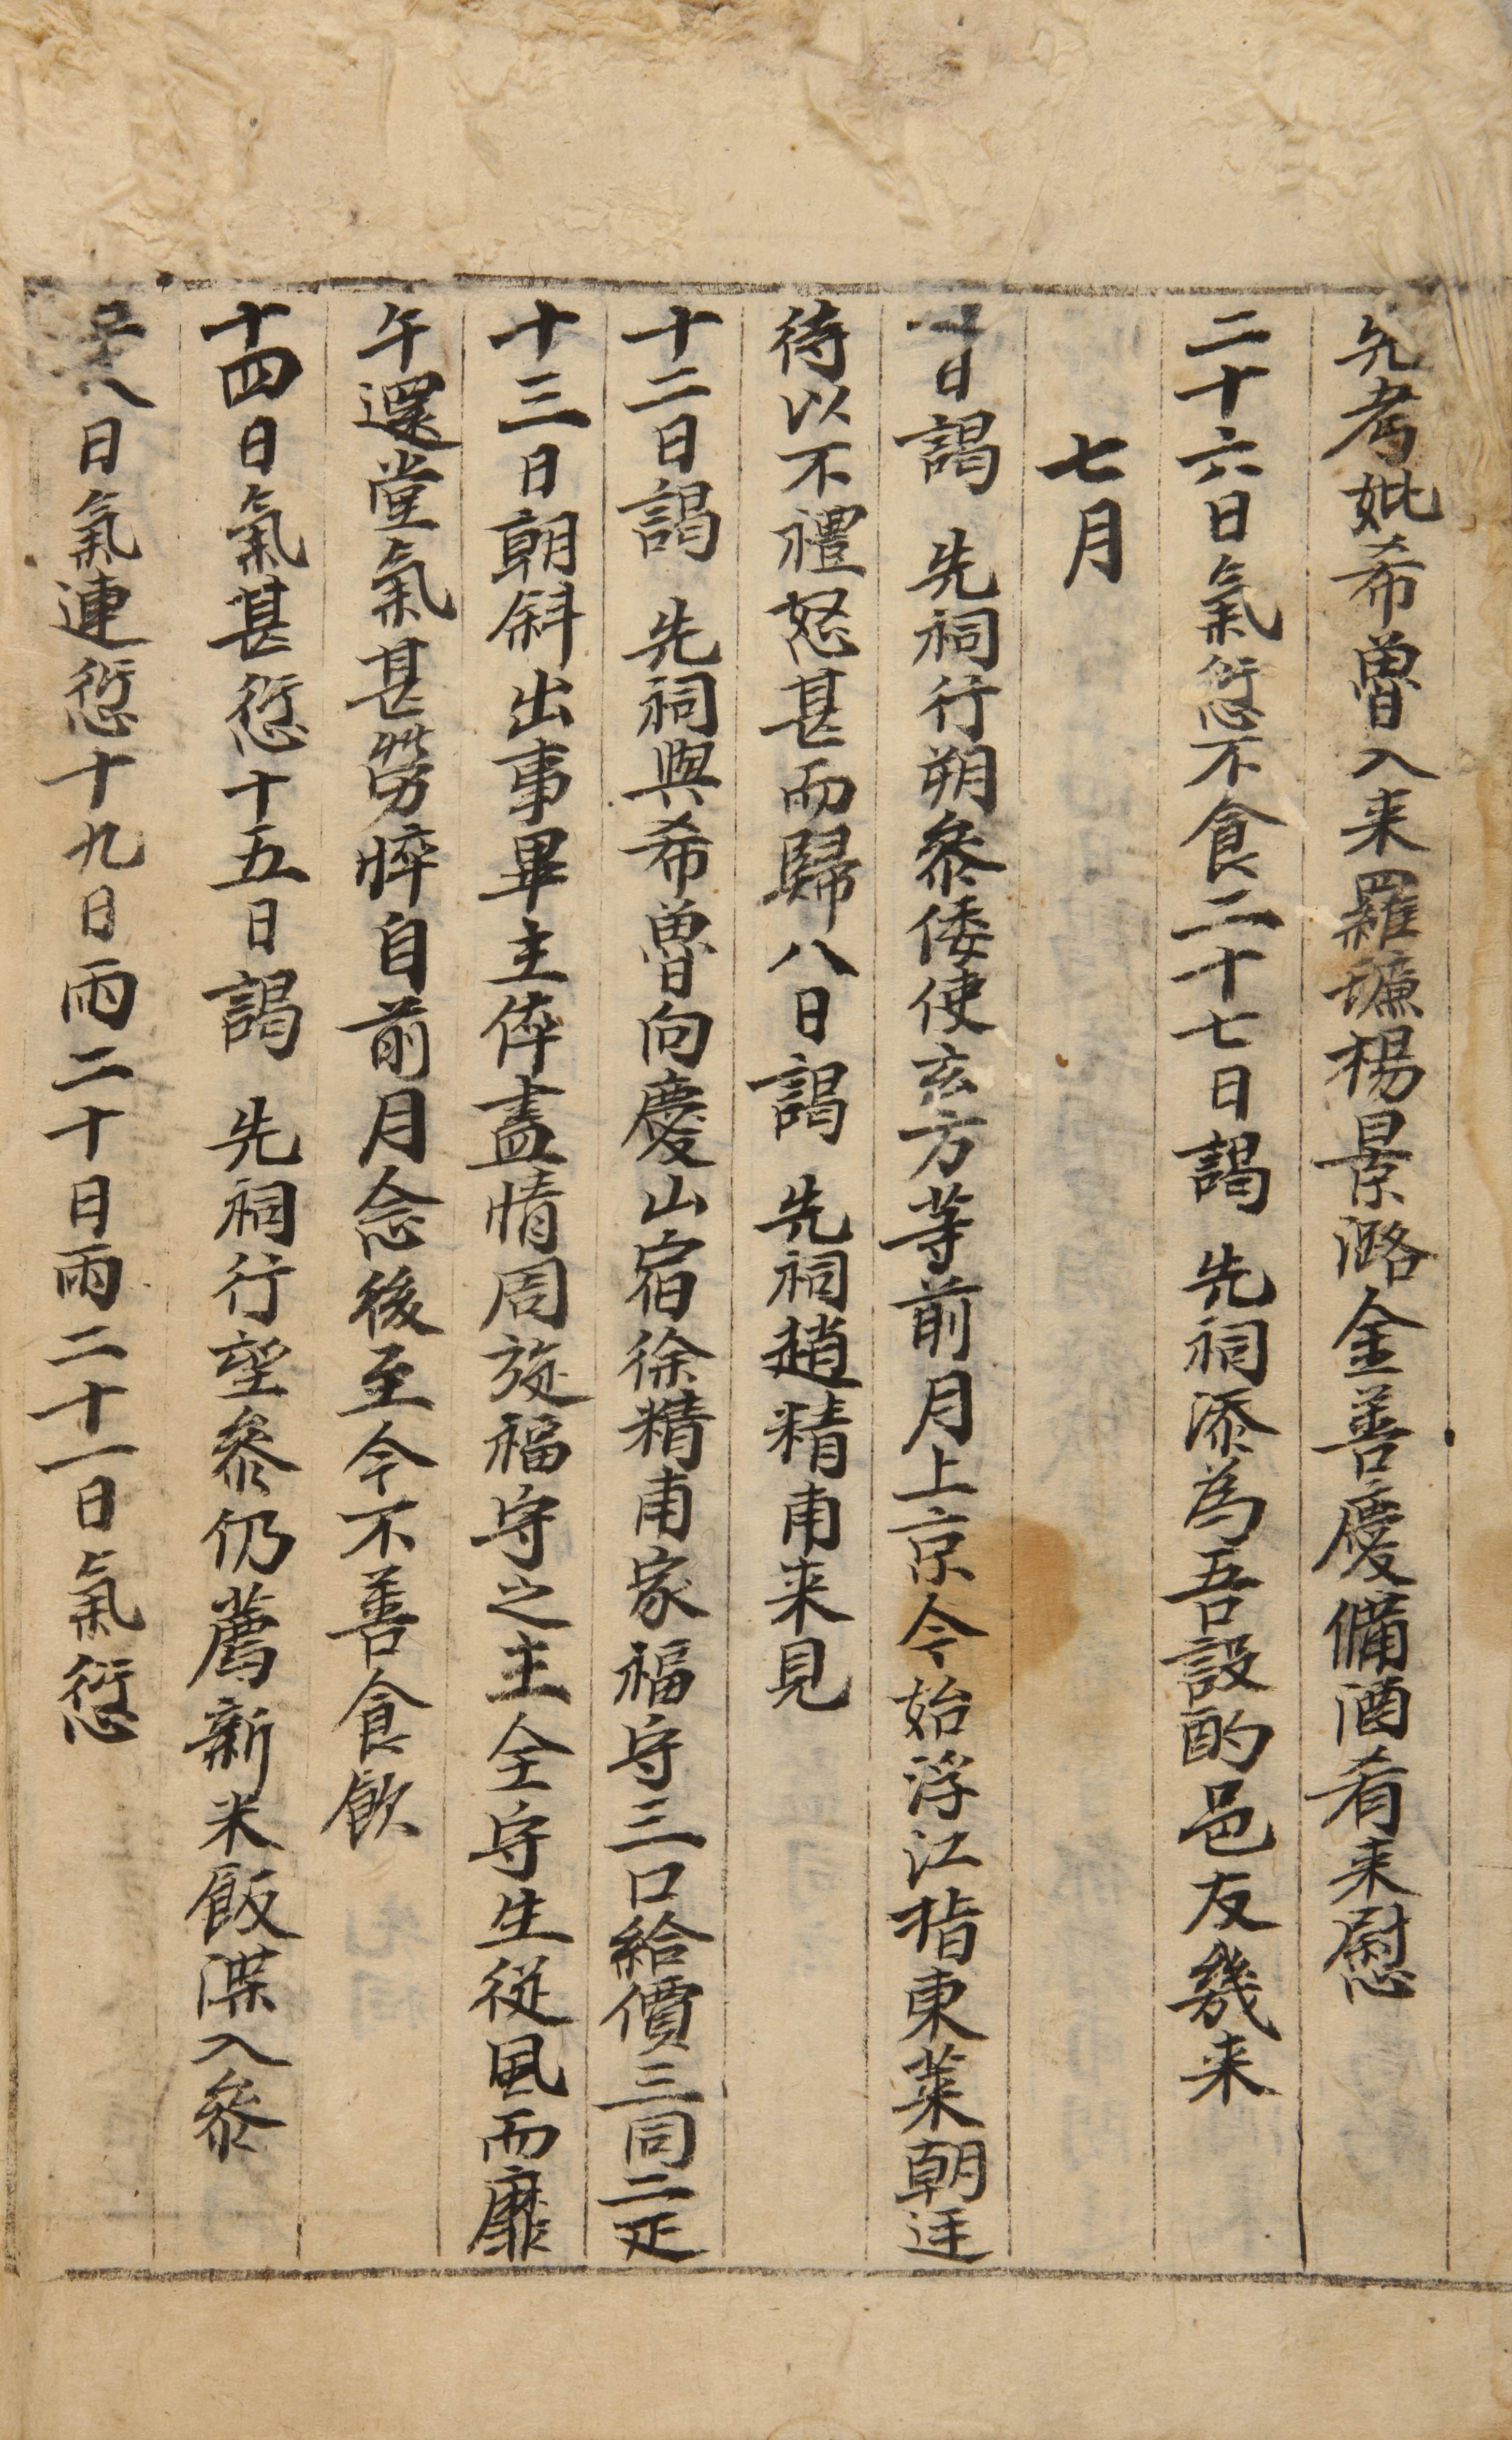 先考妣希曾入来羅㻩楊景潞金善慶備酒肴来慰
二十六日氣愆不食二十七日謁 先祠添為吾設酌邑友幾来
七月
一日謁 先祠行朔叅倭使玄方等前月上京今始浮江指東萊朝廷
待以不禮怒甚而歸八日謁 先祠趙精甫来見
十二日謁 先祠與希曾向慶山宿徐精甫家福守三口給價三同二疋
十三日朝斜出事畢主倅盡情周旋福守之主全守生従風而靡
午還堂氣甚勞悴自前月念後至今不善食飲
十四日氣甚愆十五日謁 先祠行望叅仍薦新米飯渫入叅
八日氣連愆十九日雨二十日雨二十一日氣愆